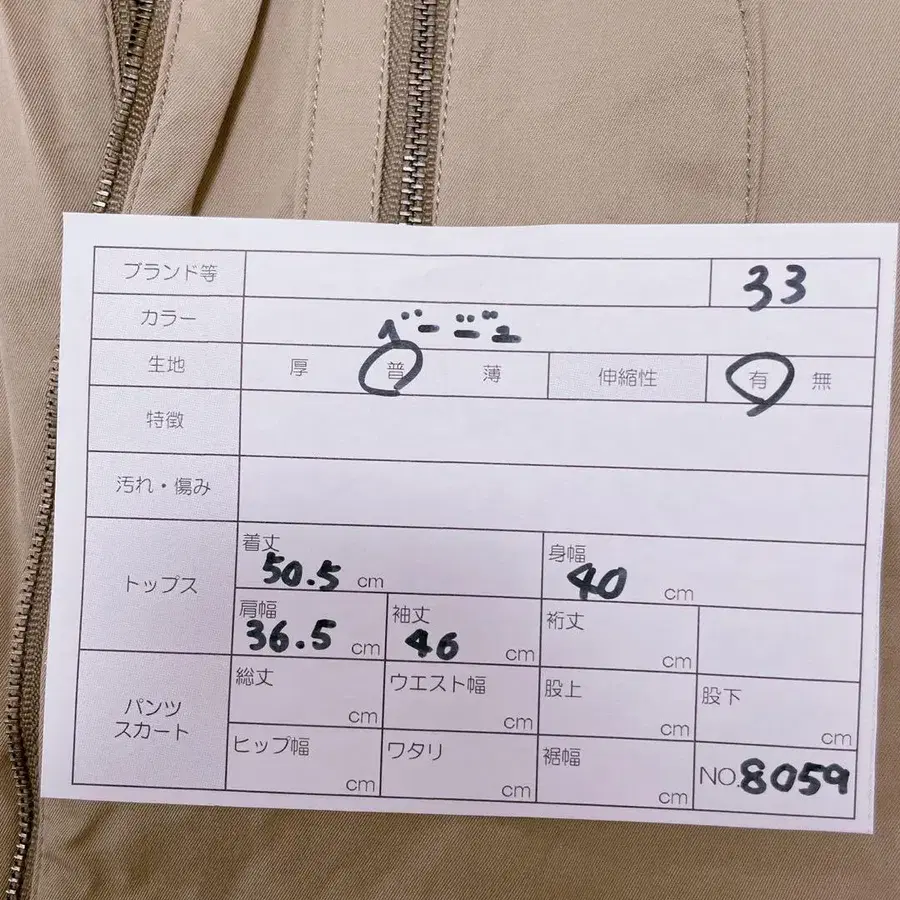 ブランド等 33
カラー ベージュ
生地 厚 普 薄 伸縮性 有 無
特徴
汚れ・傷み
トップス
着丈 50.5 cm 身幅 40 cm
肩幅 36.5 cm 袖丈 46 cm 裄丈 cm
パンツ
スカート
総丈 cm ウエスト幅 cm 股上 cm 股下 cm
ヒップ幅 cm ワタリ cm 裾幅 cm NO.8059